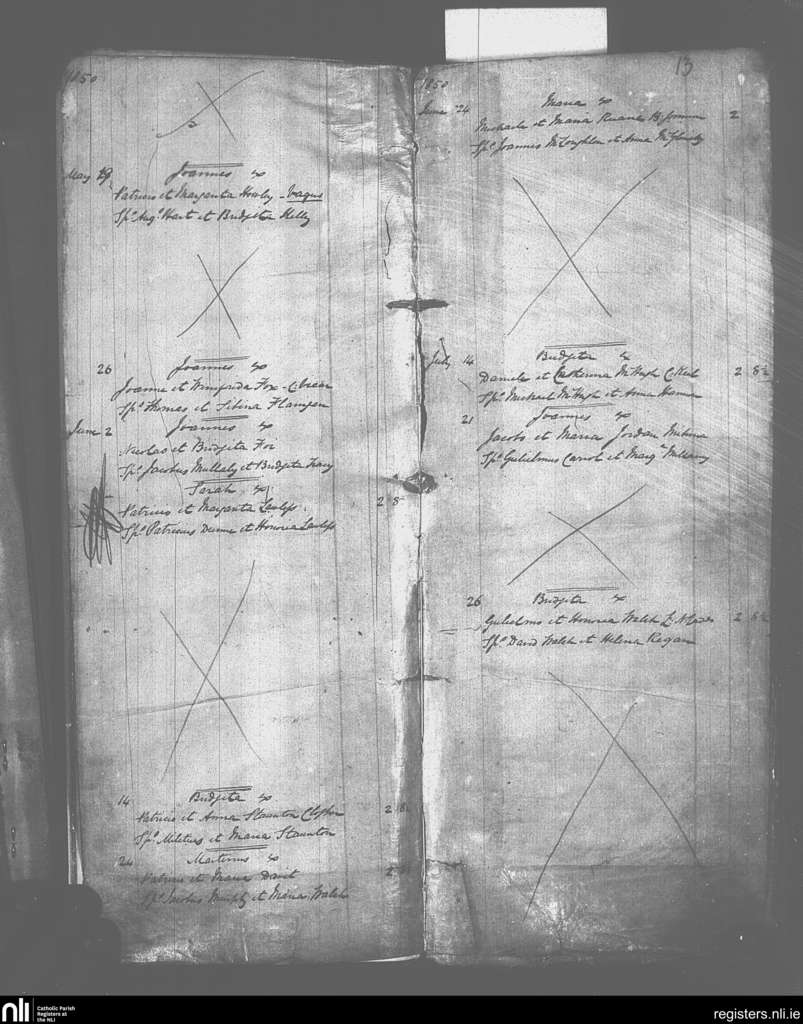 1850
May 19 Joannes
Patricio et Margarita Howley - Vagus
Sp. Aug. Hart et Bridgetta Kelly
26 Joannes
Joanne et Winifrida Fox -
Sp. Thomas et Sibina Flangan
June 2 Joannes
Nicolao et Bridgita Fox
Sp. Jacobus Mullaly et Bridgita
Sarah
Patricio et Margarita 2 8
Sp. Patricius Dunne et Honoria
14 Bridgita
Patricio et Anna Staunton 2 8
Sp. Militius et Maria Staunton
24 Martinus
Patricio et Maria Davit
Sp. Jacobus Murphy et Maria Walsh
13
1850
June 24 Maria
Michaele et Maria Ruane 2
Sp. Joannes McLoughlin et Anna
July 14 Bridgita
Daniele et Catherina McHugh 2 8
Sp. Michael McHugh et Anna
21 Joannes
Jacobo et Maria Jordan
Sp. Gulielmus Carrol et Marg
26 Bridgita
Gulielmo et Honoria Walsh 2
Sp. David Walsh et Helena Regan
nli Catholic Parish
Registers at
the NLI
registers.nli.ie